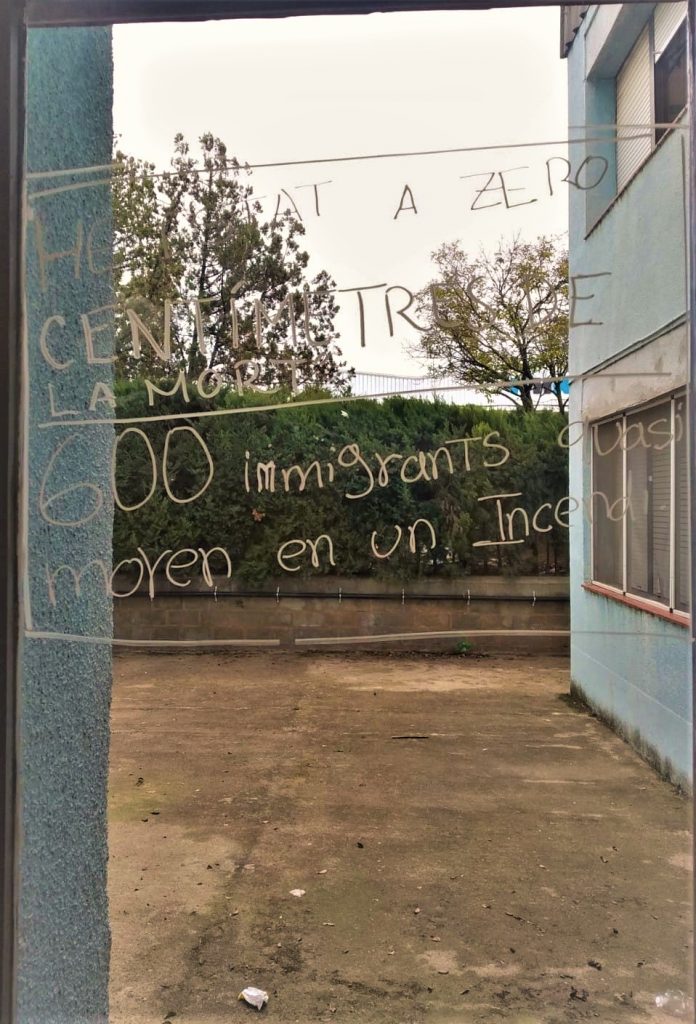 HE ESTAT A ZERO
CENTÍMETRES DE
LA MORT
600 immigrants quasi
moren en un Incendi